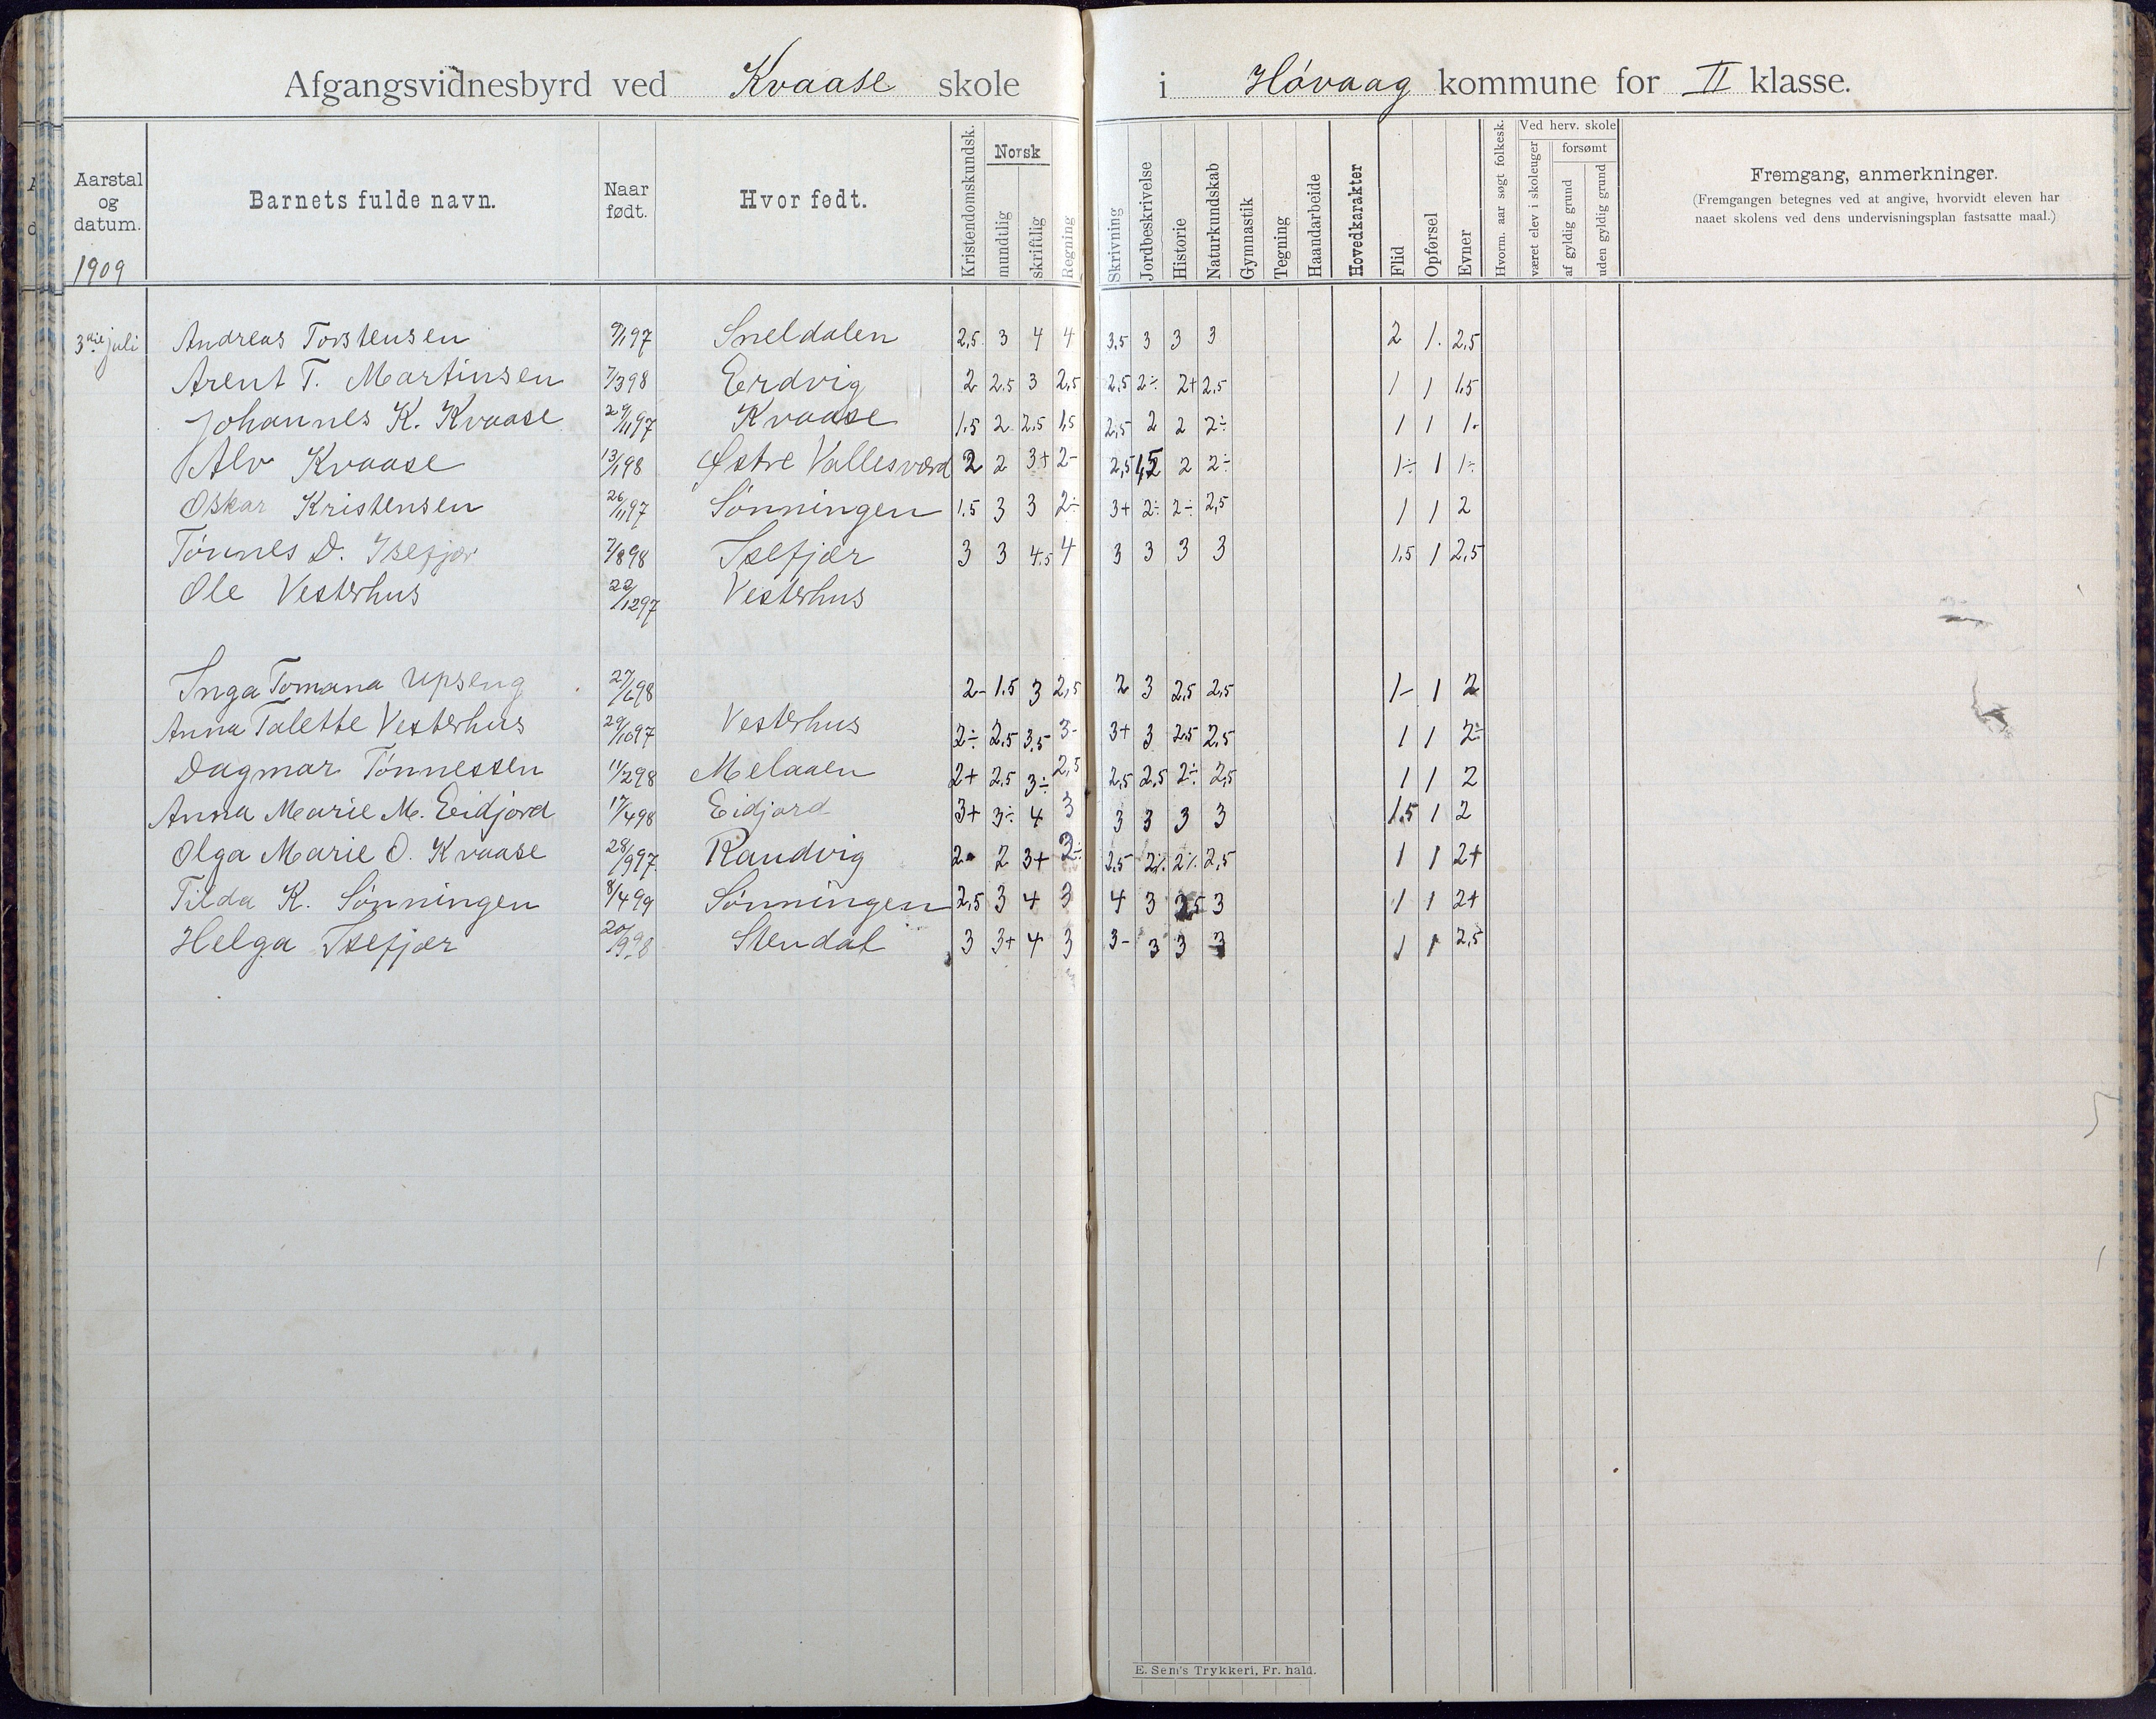 Afgangsvidnesbyrd ved Kvaase skole i Høvaag kommune for II klasse.
Aarstal og datum. 1909
Barnets fulde navn.
Naar født.
Hvor født.
Kristendomskundsk.
Norsk
mundtlig
skriftlig
Regning
Skrivning
Jordbeskrivelse
Historie
Naturkundskab
Gymnastik
Tegning
Haandarbeide
Hovedkarakter
Flid
Opførsel
Evner
Hvorm. aar søgt folkesk.
Ved herv. skole
været elev i skoleuger
forsømt
af gyldig grund
uden gyldig grund
Fremgang, anmerkninger.
(Fremgangen betegnes ved at angive, hvorvidt eleven har
naaet skolens ved dens undervisningsplan fastsatte maal.)
3die juli Andreas Torstensen 9/1 97 Sneldalen 2,5 3 4 4 3,5 3 3 3 2 1. 2,5
Arent T. Martinsen 7/3 98 Erdvig 2 2.5 3 2,5 2,5 2÷ 2+ 2,5 1 1 1,5
Johannes K. Kvaase 29/11 97 Kvaase 1.5 2 2,5 1,5 2,5 2 2 2÷ 1 1 1.
Alv Kvaase 13/1 98 Østre Vallesværd 2 2 3+ 2- 2,5 1,5 2 2÷ 1÷ 1 1÷
Oskar Kristensen 26/11 97 Sønningen 1.5 3 3 2÷ 3+ 2÷ 2÷ 2,5 1 1 2
Tønnes D. Isefjær 7/8 98 Isefjær 3 3 4.5 4 3 3 3 3 1,5 1 2,5
Ole Vesterhus 22/12 97 Vesterhus
Inga Tomana Upseng 27/6 98 2- 1.5 3 2,5 2 3 2,5 2,5 1- 1 2
Anna Talette Vesterhus 29/10 97 Vesterhus 2÷ 2,5 3,5 3- 3+ 3 2,5 2,5 1 1 2÷
Dagmar Tønnessen 11/2 98 Melaaen 2+ 2,5 3÷ 2,5 2,5 2,5 2÷ 2,5 1 1 2
Anna Marie M. Eidjord 17/4 98 Eidjord 3+ 3÷ 4 3 3 3 3 3 1.5 1 2
Olga Marie O. Kvaase 28/9 97 Randvig 2- 2 3+ 2÷ 2,5 2% 2% 2,5 1 1 2+
Tilda K. Sønningen 8/4 99 Sønningen 2,5 3 4 3 4 3 2,5 3 1 1 2+
Helga Isefjær 20/9 98 Stendal 3 3+ 4 3 3- 3 3 3 1 1 2,5
E. Sem's Trykkeri, Fr. hald.